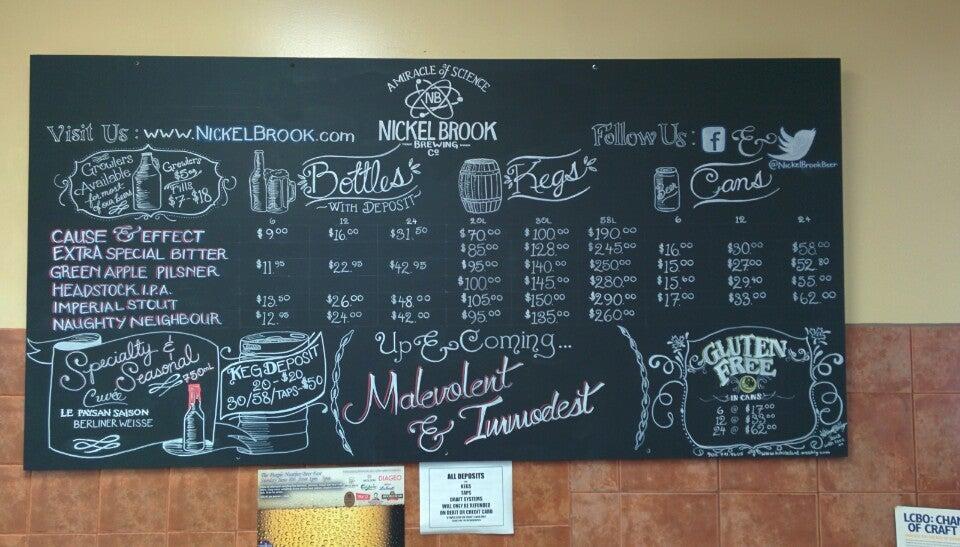 A MIRACLE of SCIENCE
NB
NICKEL BROOK
BREWING
CO
Visit Us : www.NICKELBROOK.com
Follow Us : f &
@NickelBrookBeer
Growlers
Available
for most
of our beers
Growlers
Fills
$7-$18
Bottles
WITH DEPOSIT
Kegs
Beer
Cans
6 12 24 20L 30L 58L 6 12 24
CAUSE & EFFECT $9.00 $16.00 $31.50 $70.00 $100.00 $190.00
EXTRA SPECIAL BITTER $85.00 $128.00 $245.00 $16.00 $30.00 $58.00
GREEN APPLE PILSNER $11.95 $22.95 $42.95 $95.00 $140.00 $260.00 $15.00 $27.00 $52.80
HEADSTOCK I.P.A. $100.00 $145.00 $280.00 $15.00 $29.40 $55.00
IMPERIAL STOUT $13.50 $26.00 $48.00 $105.00 $150.00 $290.00 $17.00 $33.00 $62.00
NAUGHTY NEIGHBOUR $12.95 $24.00 $42.00 $95.00 $135.00 $260.00
Specialty &
Seasonal
750ml
Cuvée
LE PAYSAN SAISON
BERLINER WEISSE
KEG DEPOSIT
20 - $20
30/58/TAPS - $50
Up & Coming...
Malevolent
& Immodest
GLUTEN
FREE
IN CANS
6 @ $17.00
12 @ $33.00
24 @ $62.00
DIAGEO
ALL DEPOSITS
KEGS
TAPS
DRAFT SYSTEMS
WILL ONLY BE REFUNDED
ON DEBIT OR CREDIT CARD
LCBO: CHAN
OF CRAFT